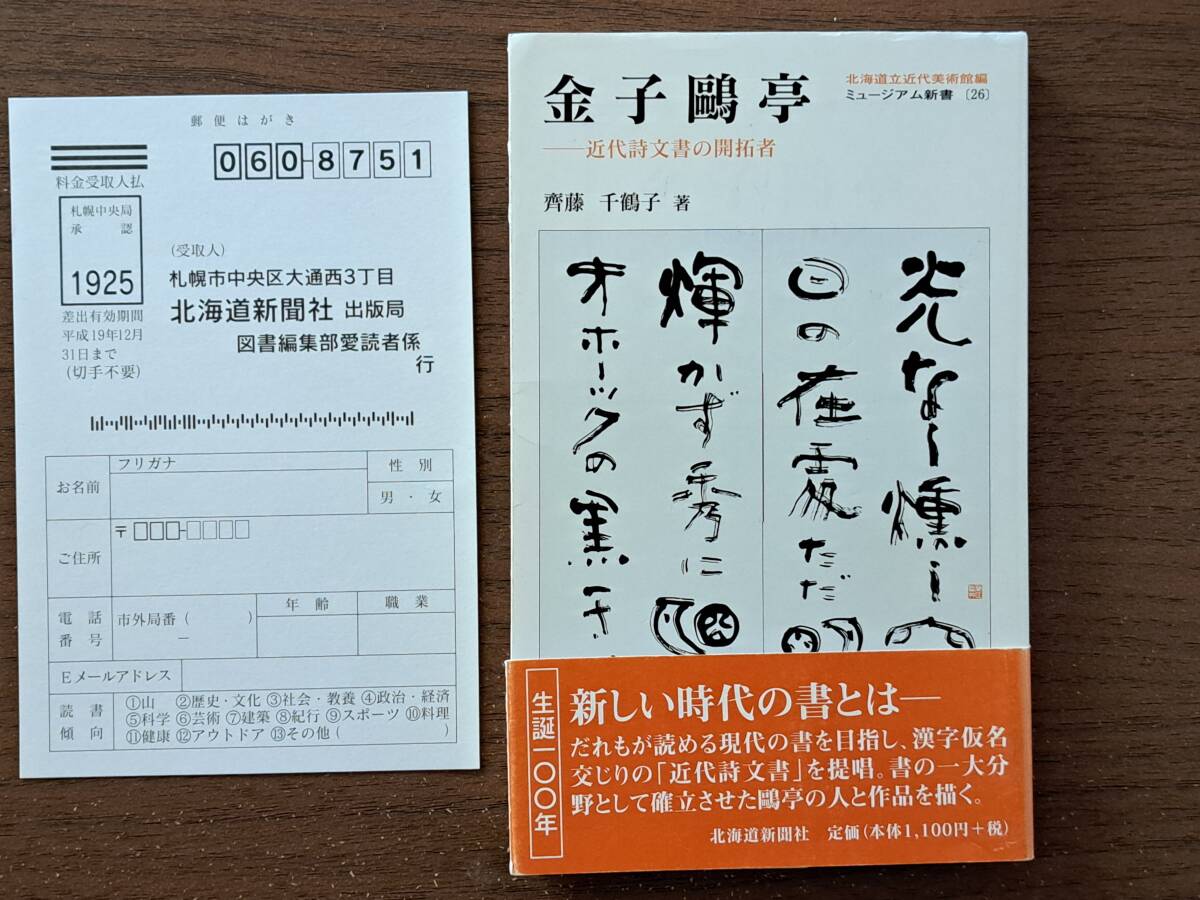 郵便はがき
060-8751
料金受取人払
札幌中央局
承認
1925
差出有効期間
平成19年12月
31日まで
(切手不要)
(受取人)
札幌市中央区大通西3丁目
北海道新聞社 出版局
図書編集部愛読者係
行
お名前
フリガナ
性別
男・女
ご住所
〒
電話
番号
市外局番( )
−
年齢
職業
Eメールアドレス
読書
傾向
①山 ②歴史・文化 ③社会・教養 ④政治・経済
⑤科学 ⑥芸術 ⑦建築 ⑧紀行 ⑨スポーツ ⑩料理
⑪健康 ⑫アウトドア ⑬その他( )
金子鷗亭
北海道立近代美術館編
ミュージアム新書〔26〕
──近代詩文書の開拓者
齊藤 千鶴子 著
光なく燻し
日の在處ただ
輝かず秀に
オホーツクの黒
生誕一〇〇年
新しい時代の書とは─
だれもが読める現代の書を目指し、漢字仮名
交じりの「近代詩文書」を提唱。書の一大分
野として確立させた鷗亭の人と作品を描く。
北海道新聞社 定価(本体1,100円+税)